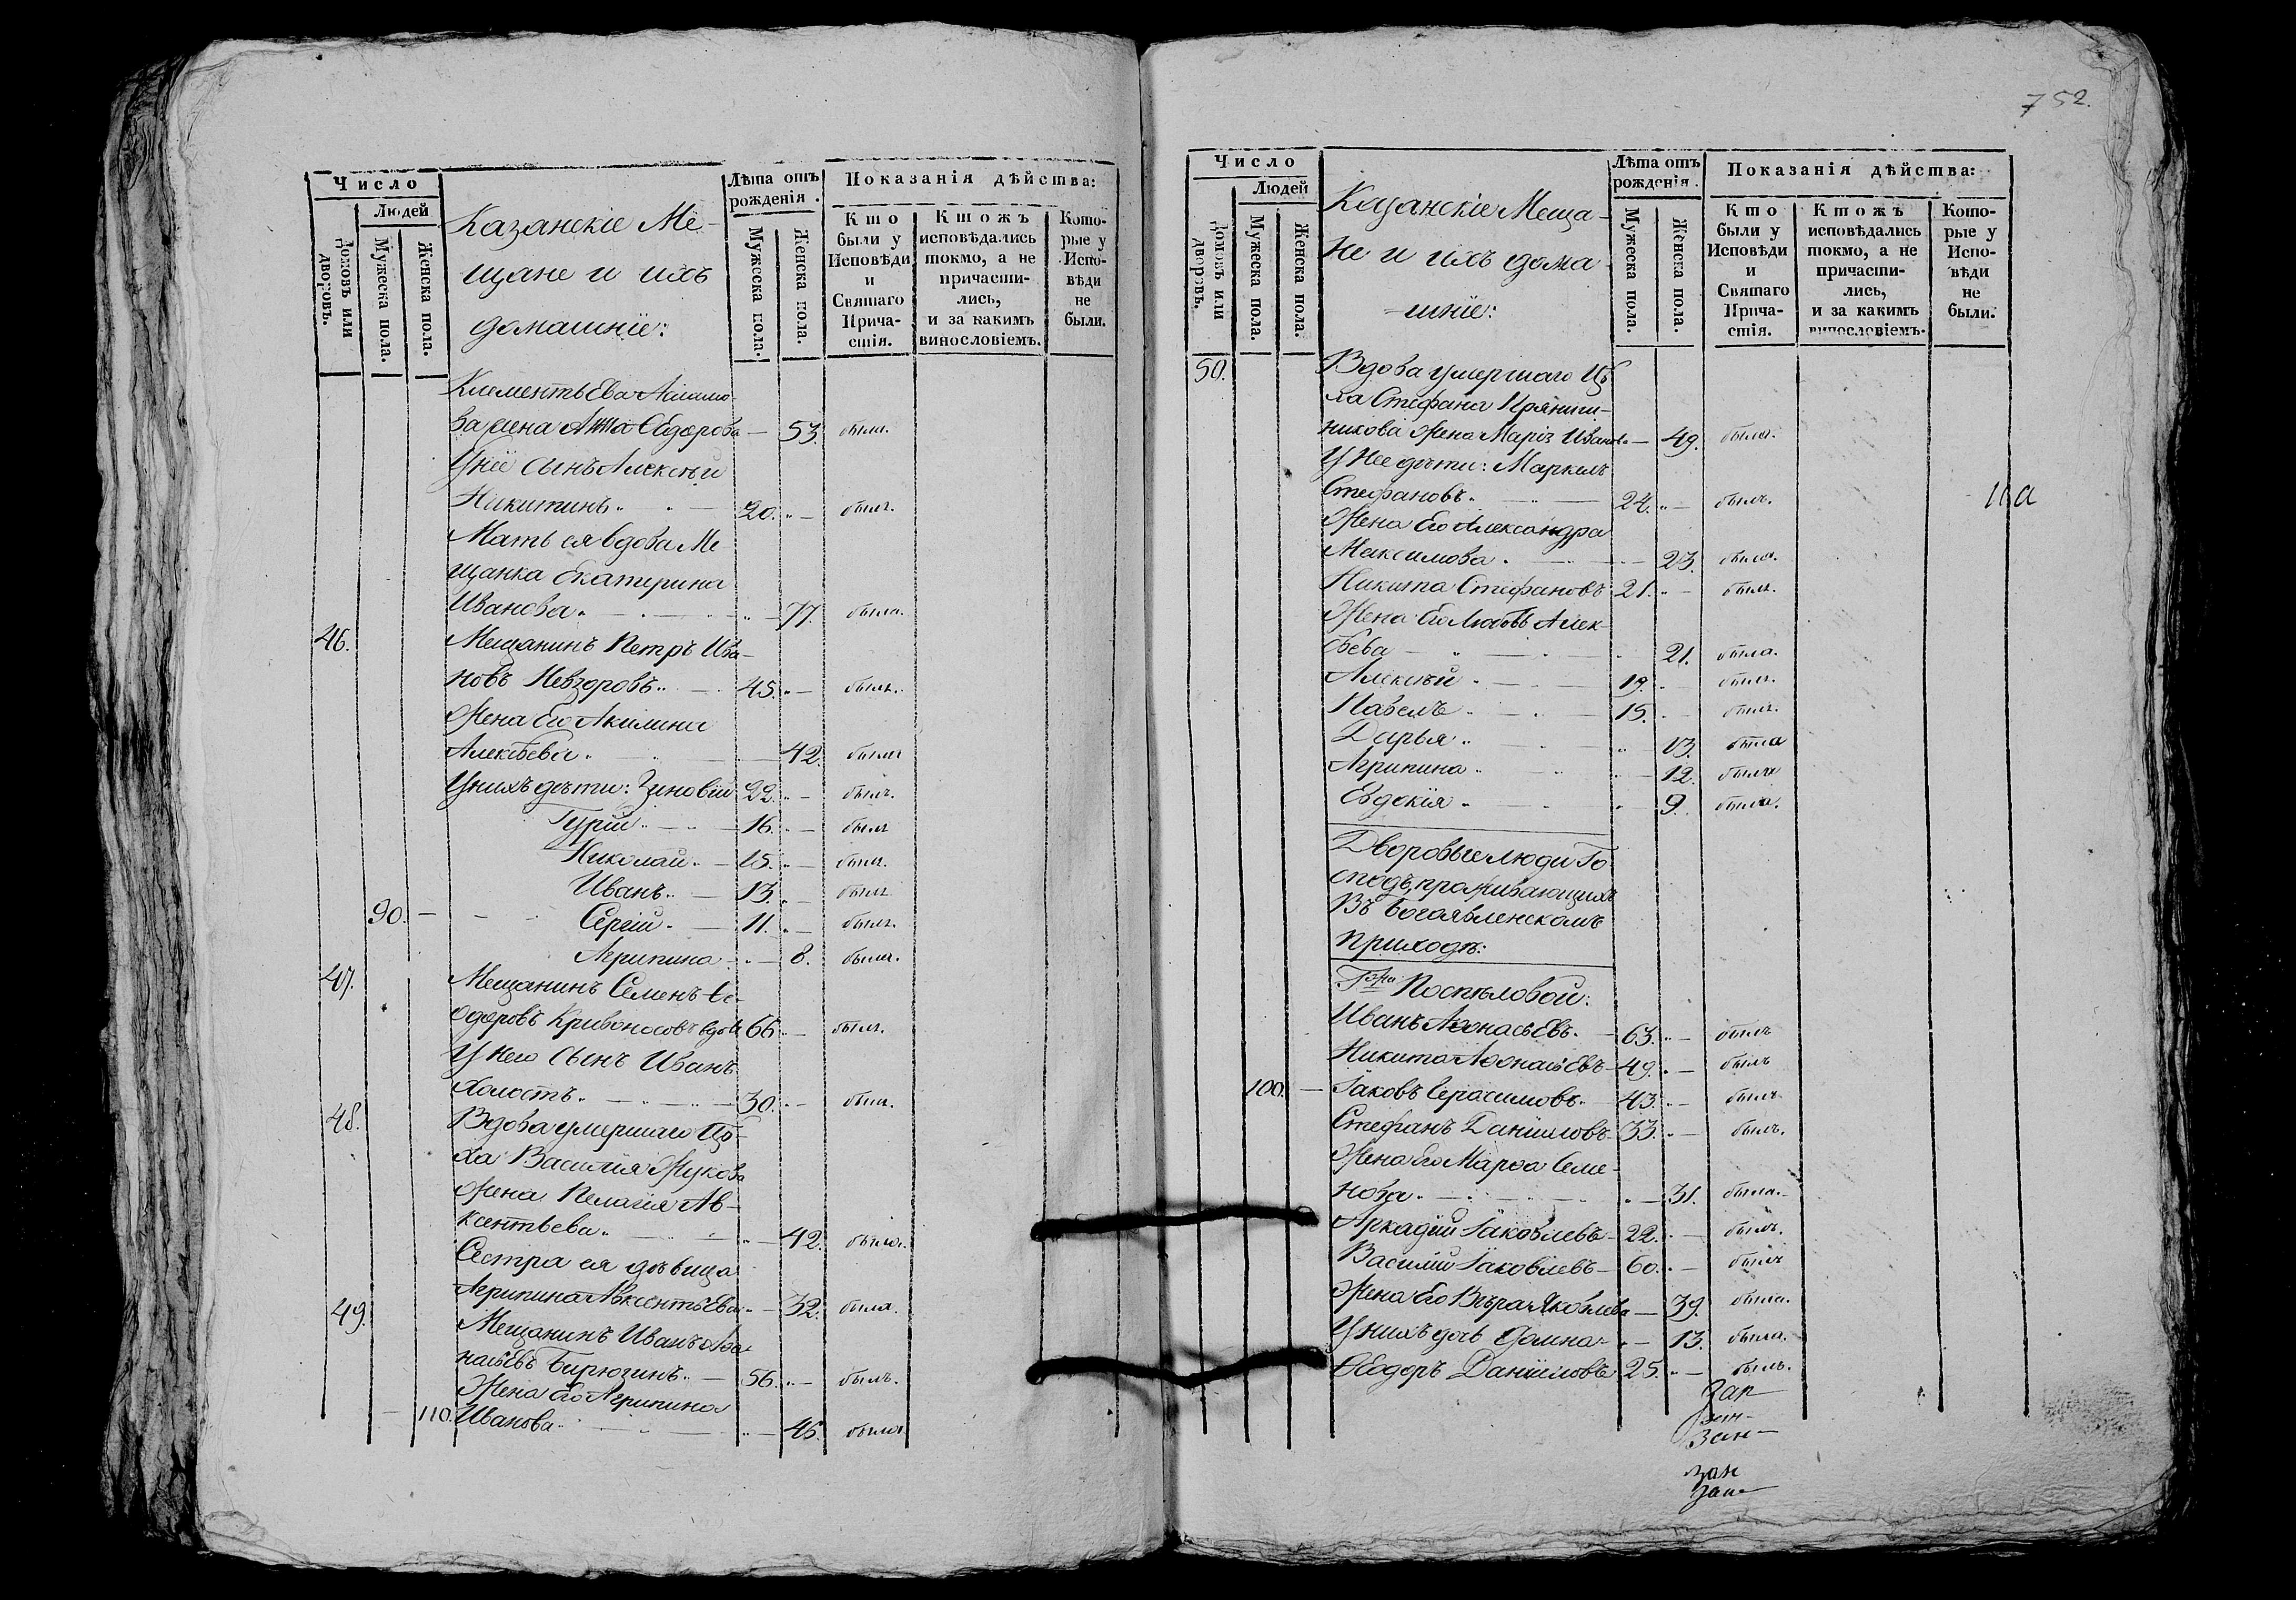 Число
Людей
Домовъ или дворовъ.
Мужеска пола.
Женска пола.
Казанскіе Ме-
щане и ихъ
домашніе:
Лѣта отъ рожденія.
Мужеска пола.
Женска пола.
Показанія дѣйства:
Кто были у Исповѣди и Святаго Причастія.
Ктожъ исповѣдались токмо, а не причастились, и за какимъ винословіемъ.
Которые у Исповѣди не были.
Клементьева
ва жена Анна Ѳедорова — 53. была.
У неё сынъ Алексѣй
Никитинъ. 20. „ — былъ.
Мать ея вдова Ме
щанка Екатерина
Иванова. „ — 77. была.
46. Мещанинъ Петръ Ива-
новъ Невзоровъ. 45. „ — былъ.
Жена его Акилина
Алексѣева. — 42. была
У нихъ дѣти: Зиновій 22. „ — былъ.
Гурій. — 16. „ — былъ
Николай. — 15. „ — былъ.
Иванъ. — 13. „ — былъ
90. — Сергій. — 11. „ — былъ.
Агрипина „ — 8. была.
47. Мещанинъ Семенъ Ѳе-
одоровъ Кривоносовъ вдовъ 66 „ — былъ.
У него сынъ Иванъ
холостъ. — 30. „ — былъ.
48. Вдова умершаго Цѣ-
ха Василія Жукова
жена Пелагія Ав-
ксентьева. „ — 42. была.
Сестра ея дѣвица
Агрипина Авксентьева. — 32. была.
49. Мещанинъ Иванъ Аѳа-
насьевъ Бирюзинъ. — 56. „ — былъ.
Жена его Агрипина
— 110. Иванова. „ — 46. была
752.
Число
Людей
Домовъ или дворовъ.
Мужеска пола.
Женска пола.
Казанскіе Меща-
не и ихъ дома
-шніе:
Лѣта отъ рожденія.
Мужеска пола.
Женска пола.
Показанія дѣйства:
Кто были у Исповѣди и Святаго Причастія.
Ктожъ исповѣдались токмо, а не причастились, и за какимъ винословіемъ.
Которые у Исповѣди не были.
50. Вдова умершаго Цѣ
ха Стефана Пряниш-
никова жена Марія Иванова — 49. была.
У нее дѣти: Маркелъ
Стефановъ. — 24. „ — былъ.
Жена его Александра
Максимова. — 23. была.
Никита Стефановъ 21. „ — былъ.
Жена его Любовь Алек-
ѣева — „ 21. была.
Алексѣй. — 19. былъ.
Павелъ. — 15. былъ.
Дарья. „ 13. была
Агрипина. „ — 12. была
Евдокія. „ 9. была.
Дворовые люди Го-
сподъ, проживающихъ
въ Богоявленскомъ
приходѣ:
Г-жи Поспѣловой:
Иванъ Аѳонасьевъ. — 63. „ — былъ
Никита Аѳонасьевъ — 49. „ — былъ
100. — Іаковъ Герасимовъ. 43. „ — былъ
Стефанъ Даниловъ 33. „ — былъ.
Жена его Марѳа Семе-
нова. — „ — 31. была.
Аркадій Іаковлевъ 22. „ — былъ.
Василій Іаковлевъ — 60. „ — былъ
Жена его Вѣра Яковлева — 39. была.
У нихъ дочь Домна — „ — 13. была.
Ѳеодоръ Даниловъ 25. „ — былъ.